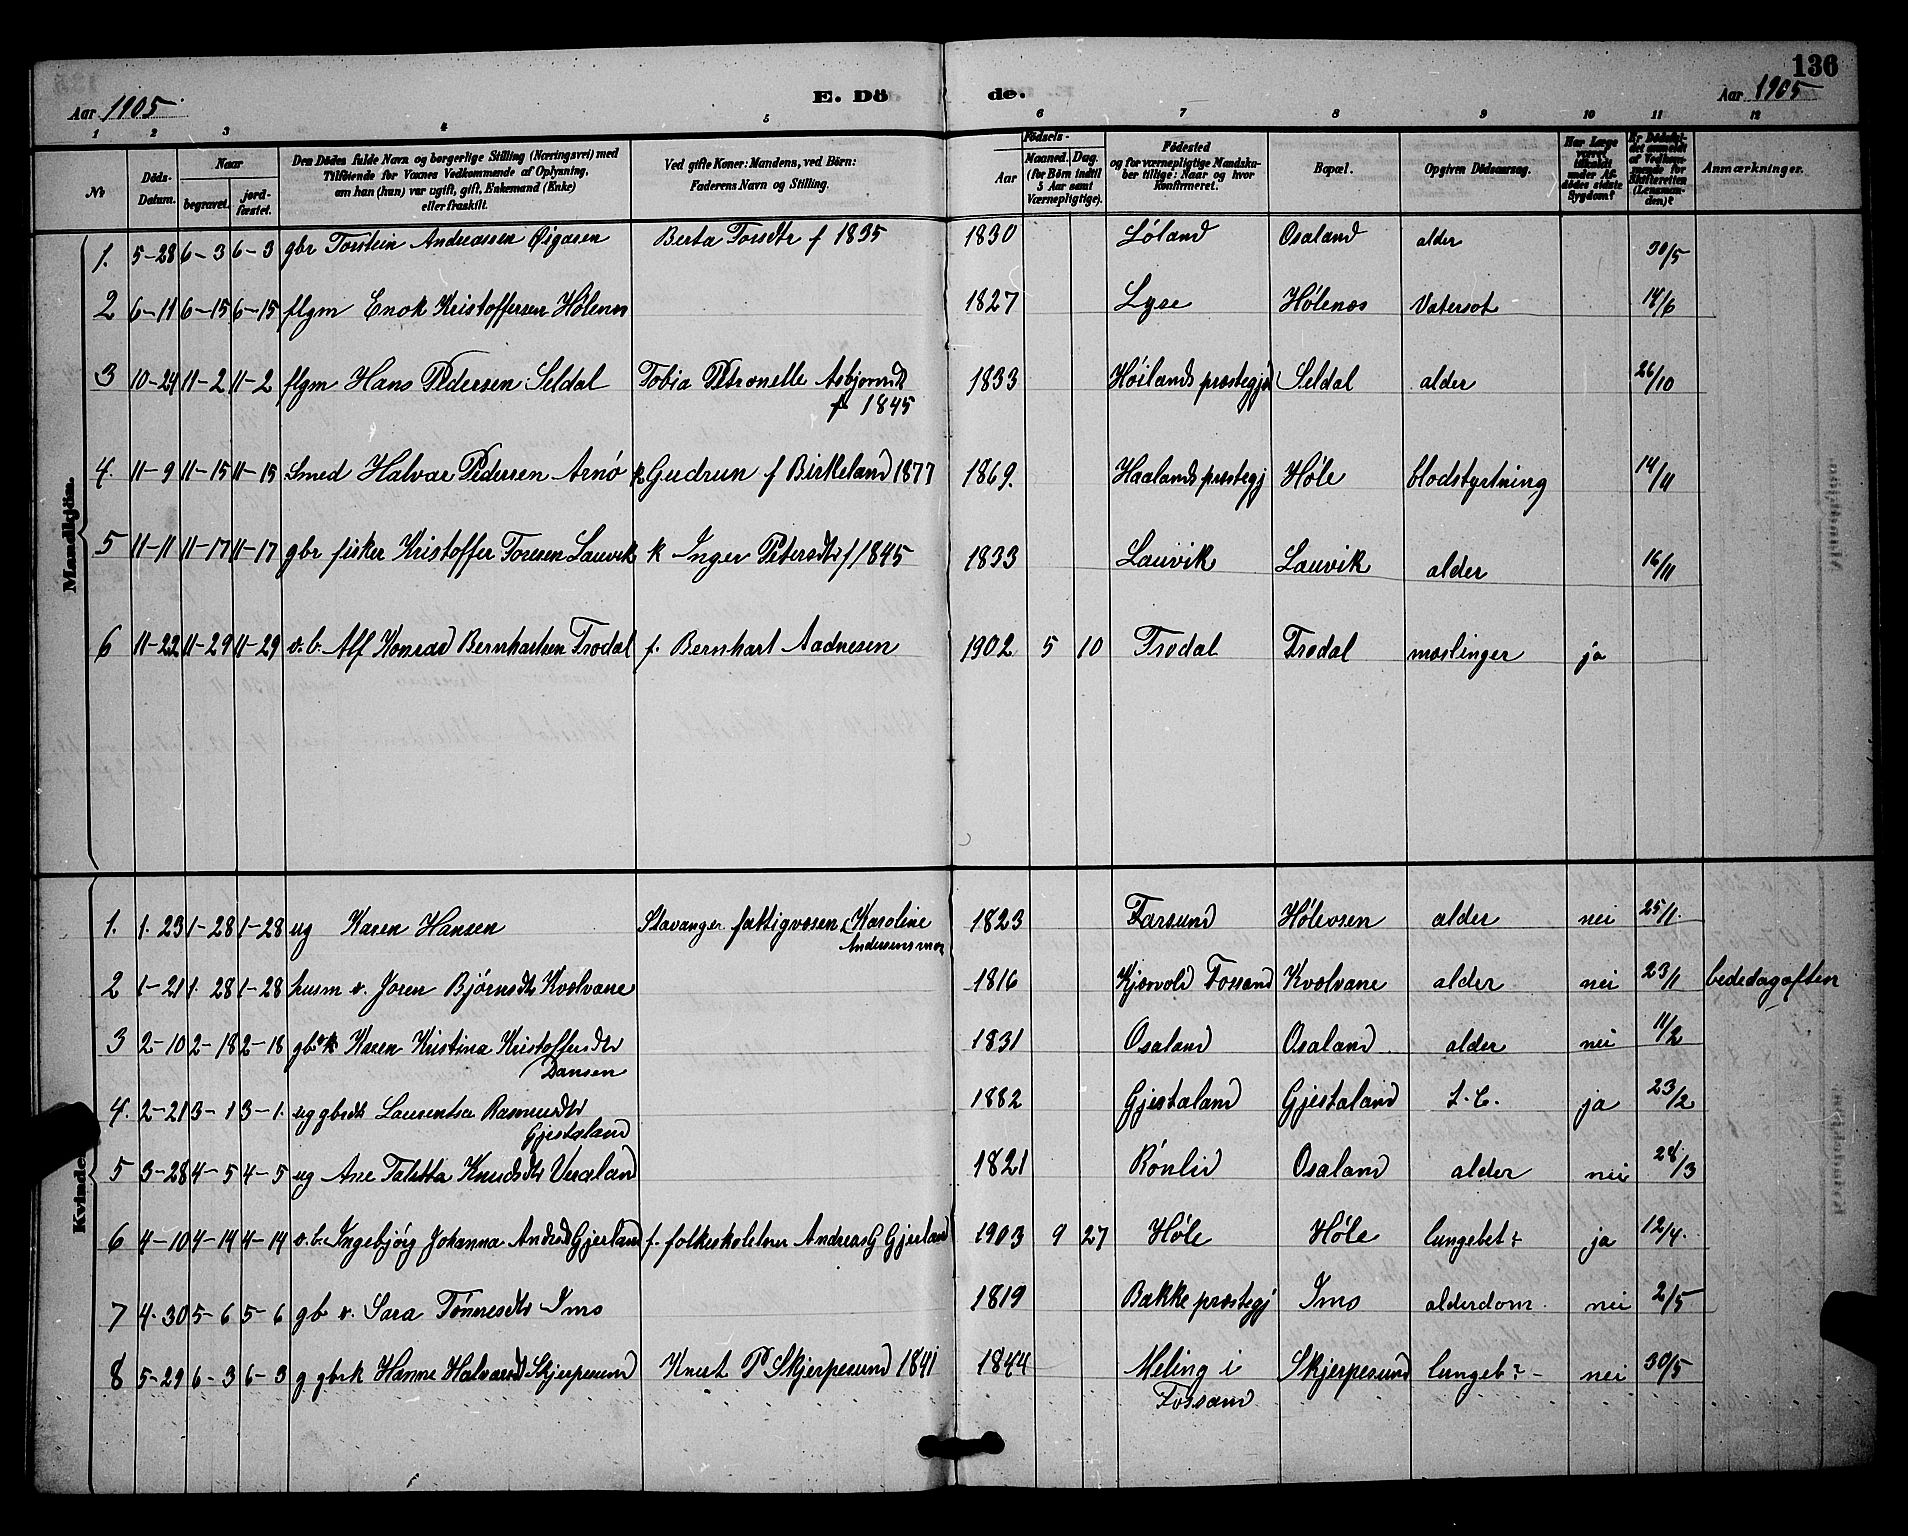 136
Aar 1905.
E. Dö
de.
Aar 1905
1 2 3 4 5 6 7 8 9 10 11 12
№
Döds-Datum.
Naar
begravet.
jordfæstet.
Den Dödes fulde Navn og borgerlige Stilling (Næringsvei) med
Tilföiende for Voxnes Vedkommende af Oplysning,
om han (hun) var ugift, gift, Enkemand (Enke)
eller fraskilt.
Ved gifte Koner: Mandens, ved Börn:
Faderens Navn og Stilling.
Födsels-
Aar
Maaned. Dag.
(for Börn indtil
5 Aar samt
Værnepligtige).
Födested
og for værnepligtige Mandskaber tillige: Naar og hvor
Konfirmeret.
Bopæl.
Opgiven Dödsaarsag.
Har Læge
været
tilkaldt
under Afdödes sidste
Sygdom?
Er Dödsfaldet anmeldt
af Vedkommende for
Skifteretten
(Lensmanden)?
Anmærkninger.
Mandkjön.
1. 5-28 6-3 6-3 gbr Torstein Andreassen Øigaren Berta Torsdtr f 1835 1830 Løland Osaland alder 30/5
2 6-11 6-15 6-15 flgm Enok Kristoffersen Hølenes 1827 Lyse Hølenes Vatersot 14/6
3 10-24 11-2 11-2 flgm Hans Pedersen Seldal Tobia Petronelle Asbjørnsdt 1833 Høilands præstegjd Seldal alder 26/10
f 1845
4. 11-9 11-15 11-15 Smed Halvar Pedersen Arnø k Gudrun f Birkeland 1877 1869. Haalands præstegj Høle blodstyrtning 14/11
5 11-11 11-17 11-17 gbr fisker Kristoffer Toresen Lauvik k Inger Petersdtr f 1845 1833 Lauvik Lauvik alder 16/11
6 11-22 11-29 11-29 v.b. Alf Konrad Bernhartsen Frodal f. Bernhart Aadnesen 1902 5 10 Frodal Frodal mæslinger ja
Kvinde
1. 1-23 1-28 1-28 ug Karen Hansen Stavanger fattigvæsen Karoline 1823 Farsund Hølevsen alder nei 25/1.
Andersens mor
2 1-21 1-28 1-28 husm v. Joren Bjørnsdtr Kvølvane 1816 Kjørvold Fossand Kvølvane alder nei 23/1 bededagaften
3 2-10 2-18 2-18 gbrk Karen Kristina Kristoffersdtr 1831 Osaland Osaland alder nei 11/2
Dansen
4. 2-21 3-1 3-1. ug gbrdt Laurentsa Rasmusdtr 1882 Gjestaland Gjestaland ja 23/2
Gjestaland
5 3-28 4-5 4-5 ug Ane Taletta Knudsdtr Veraland 1821 Rønlid Osaland alder nei 28/3
6 4-10 4-14 4-14 v.b. Ingebjørg Johanna Andrsd Gjerland f. folkeskolelærer Andreas G Gjerland 1903 9 27 Høle Høle lungebet: ja 12/4.
7 4-30 5-6 5-6 gb v. Sara Tønnesdtr Ims 1819 Bakke præstegj Ims alderdom nei 2/5
8 5-29 6-3 6-3 g gbrk Hanne Halvarsd Skjerpesund Knut P Skjerpesund 1841 1844 Meling i Skjerpesund lungeb: nei 30/5
Fossand